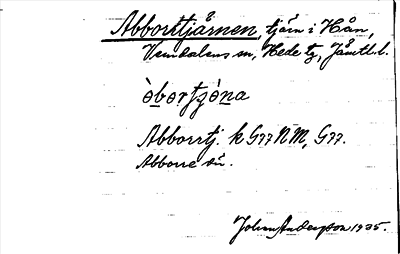 Abborrtjärnen, tjärn i Hån,
Vemdalens sn, Hede tg, Jämtl. l.
àbortʒè̱na
Abborrtj. k G77 NM, G77.
Abborre su.
Johan Anderson 1935.